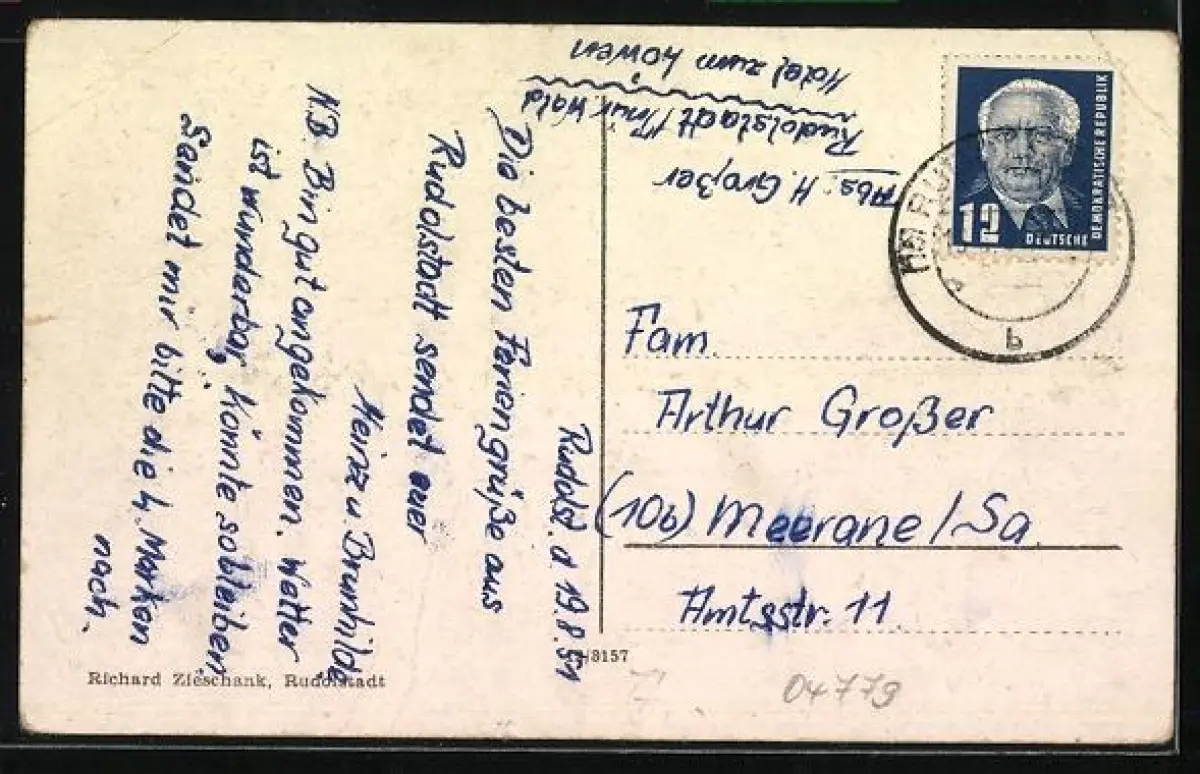 Rudolst. d 19.8.51
Die besten Feriengrüße aus
Rudolstadt sendet euer
Heinz u. Brunhilde
N.B. Bin gut angekommen. Wetter
ist wunderbar, könnte so bleiben
Sendet mir bitte die 4. Marken
nach.
Abs: H. Großer
Rudolstadt/Thür. Wald
Hotel zum Löwen
12
DEUTSCHE
DEMOKRATISCHE REPUBLIK
b
Fam.
Arthur Großer
(10b) Meerane/Sa.
Amtsstr. 11.
Richard Zieschank, Rudolstadt
/3157
04779